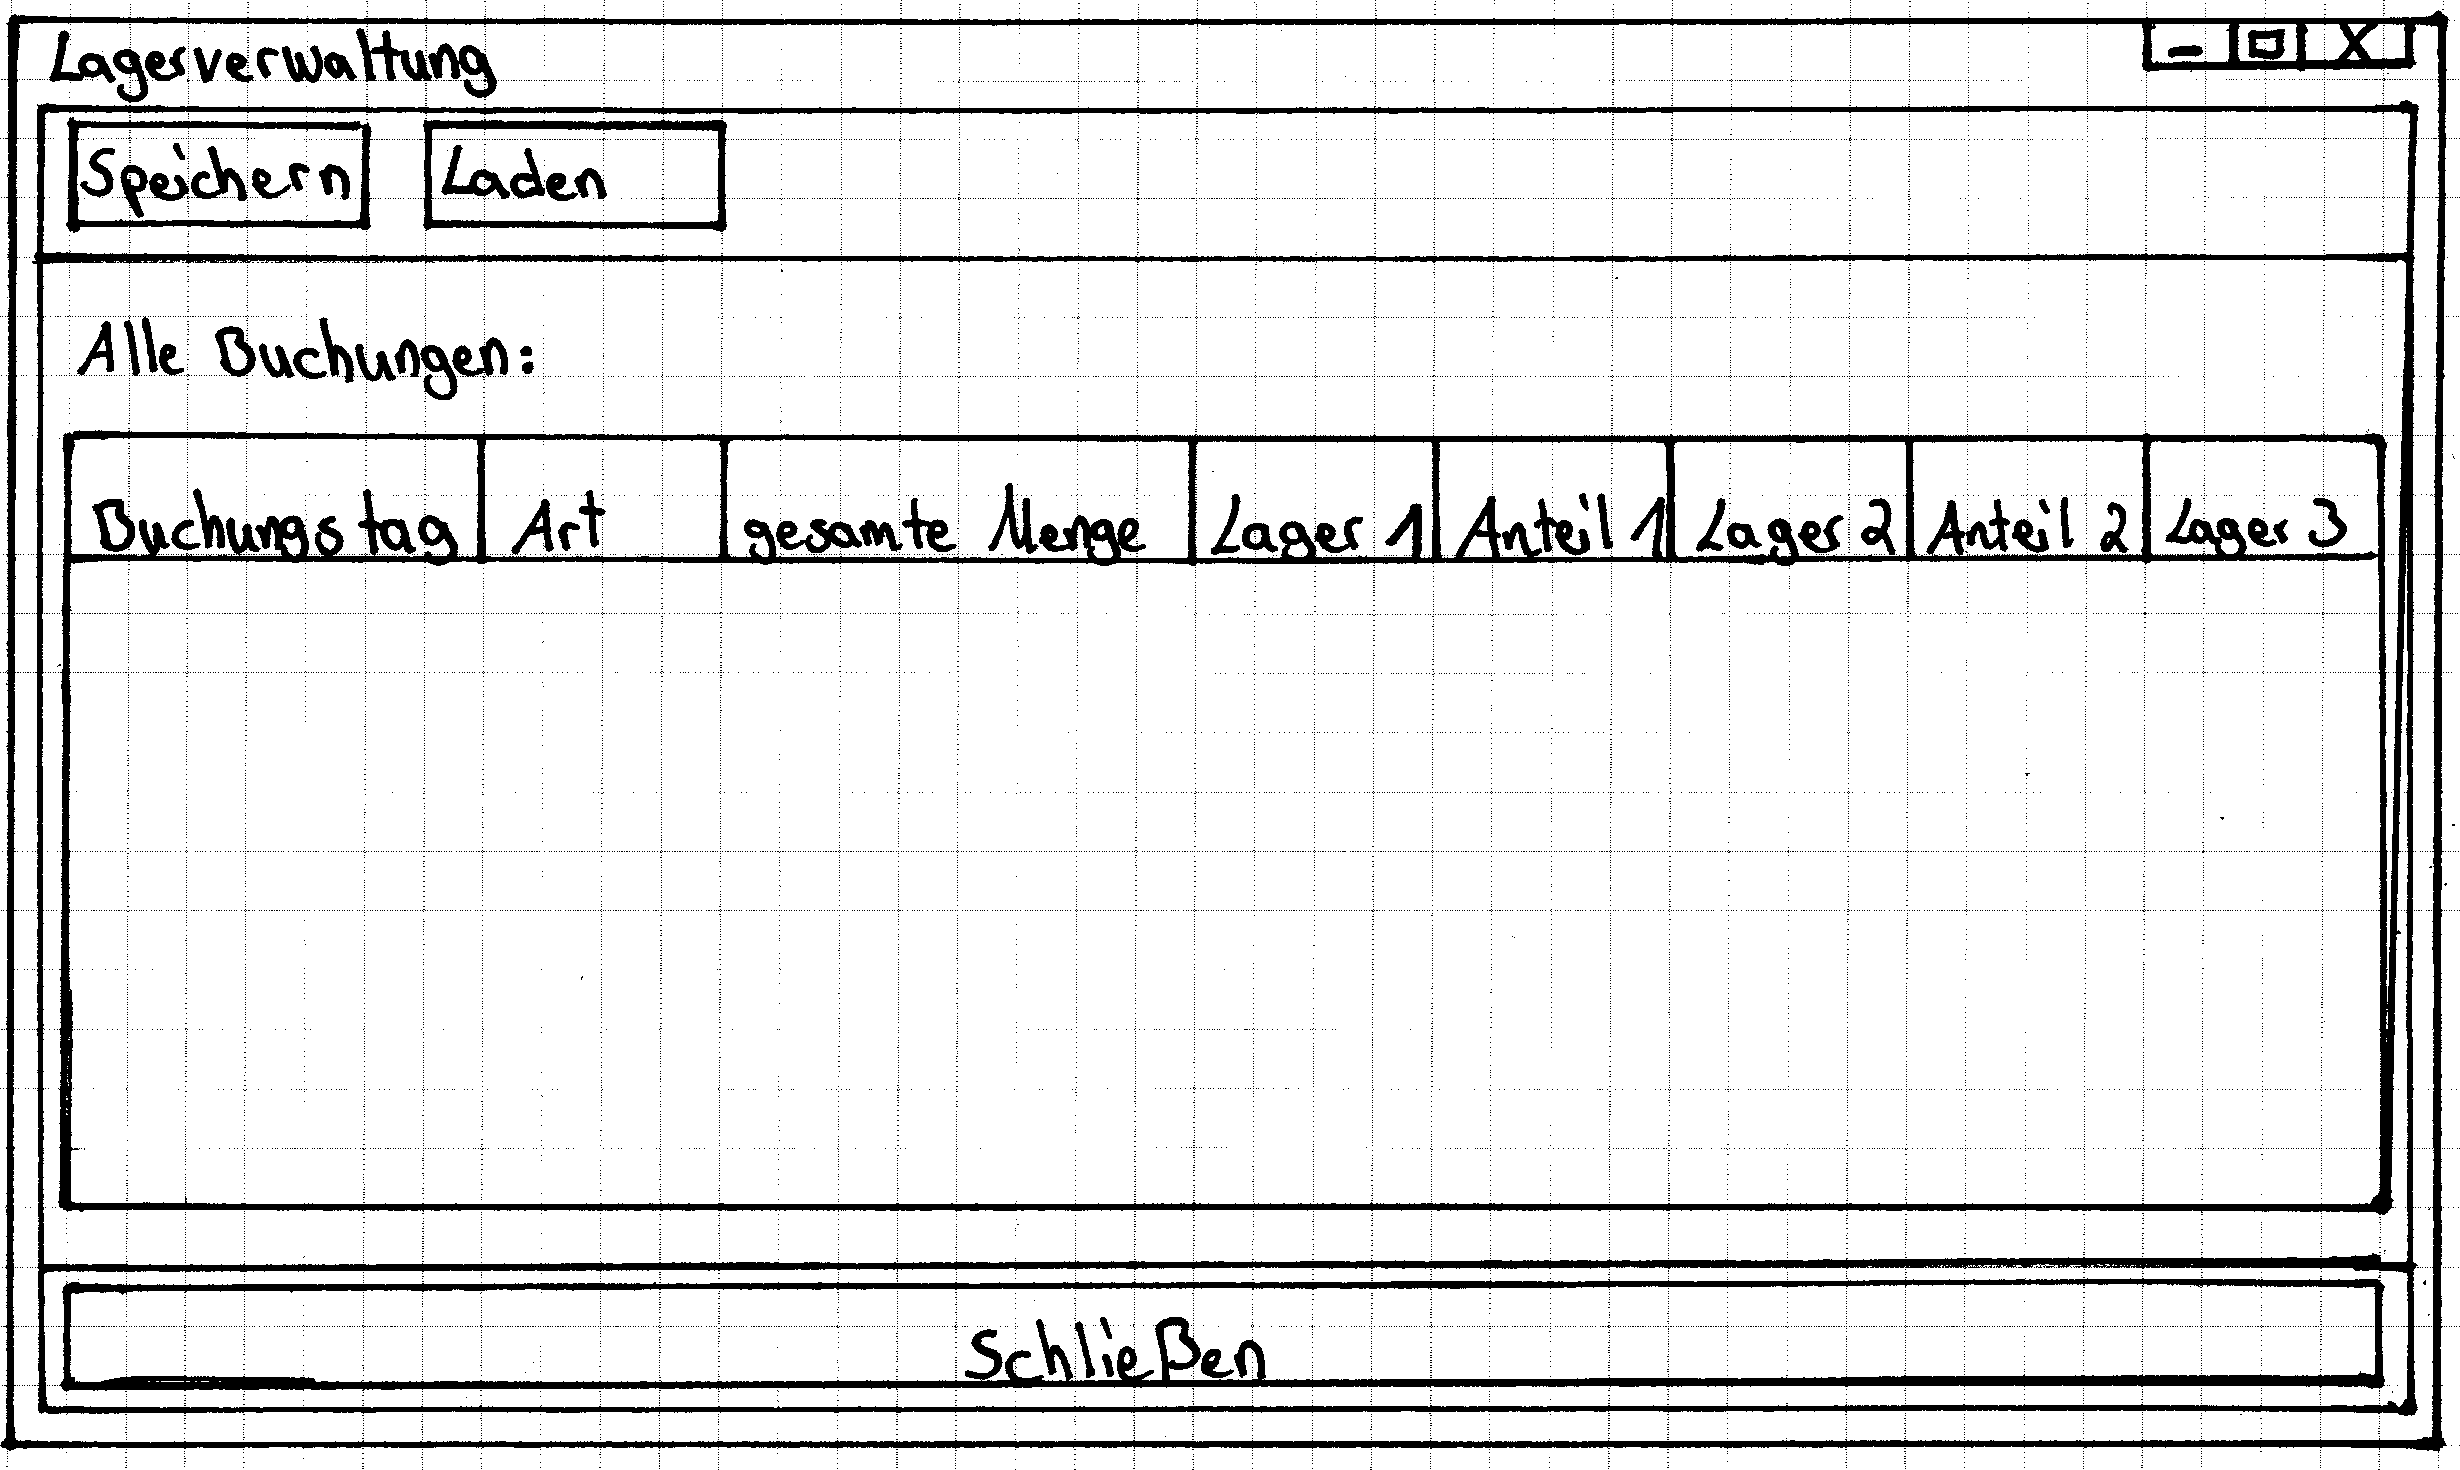 Lagerverwaltung - X
Speichern Laden
Alle Buchungen:
Buchungstag Art gesamte Menge Lager 1 Anteil 1 Lager 2 Anteil 2 Lager 3
Schließen